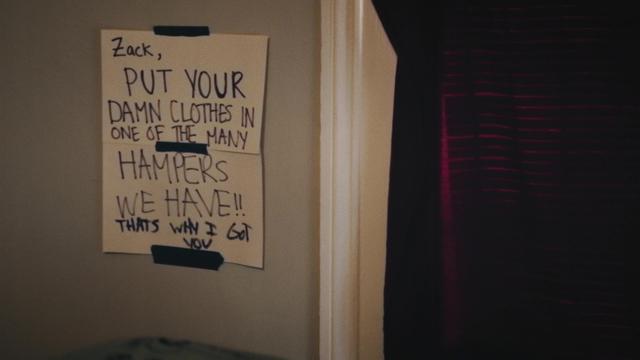 Zack,
PUT YOUR
DAMN CLOTHES IN
ONE OF THE MANY
HAMPERS
WE HAVE!!
THATS WHY I GOT
YOU